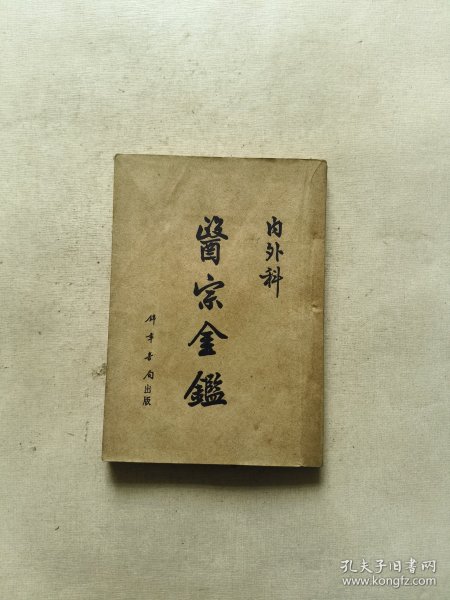 内外科
醫宗金鑑
錦章書局出版
孔夫子旧书网
www.kongfz.com